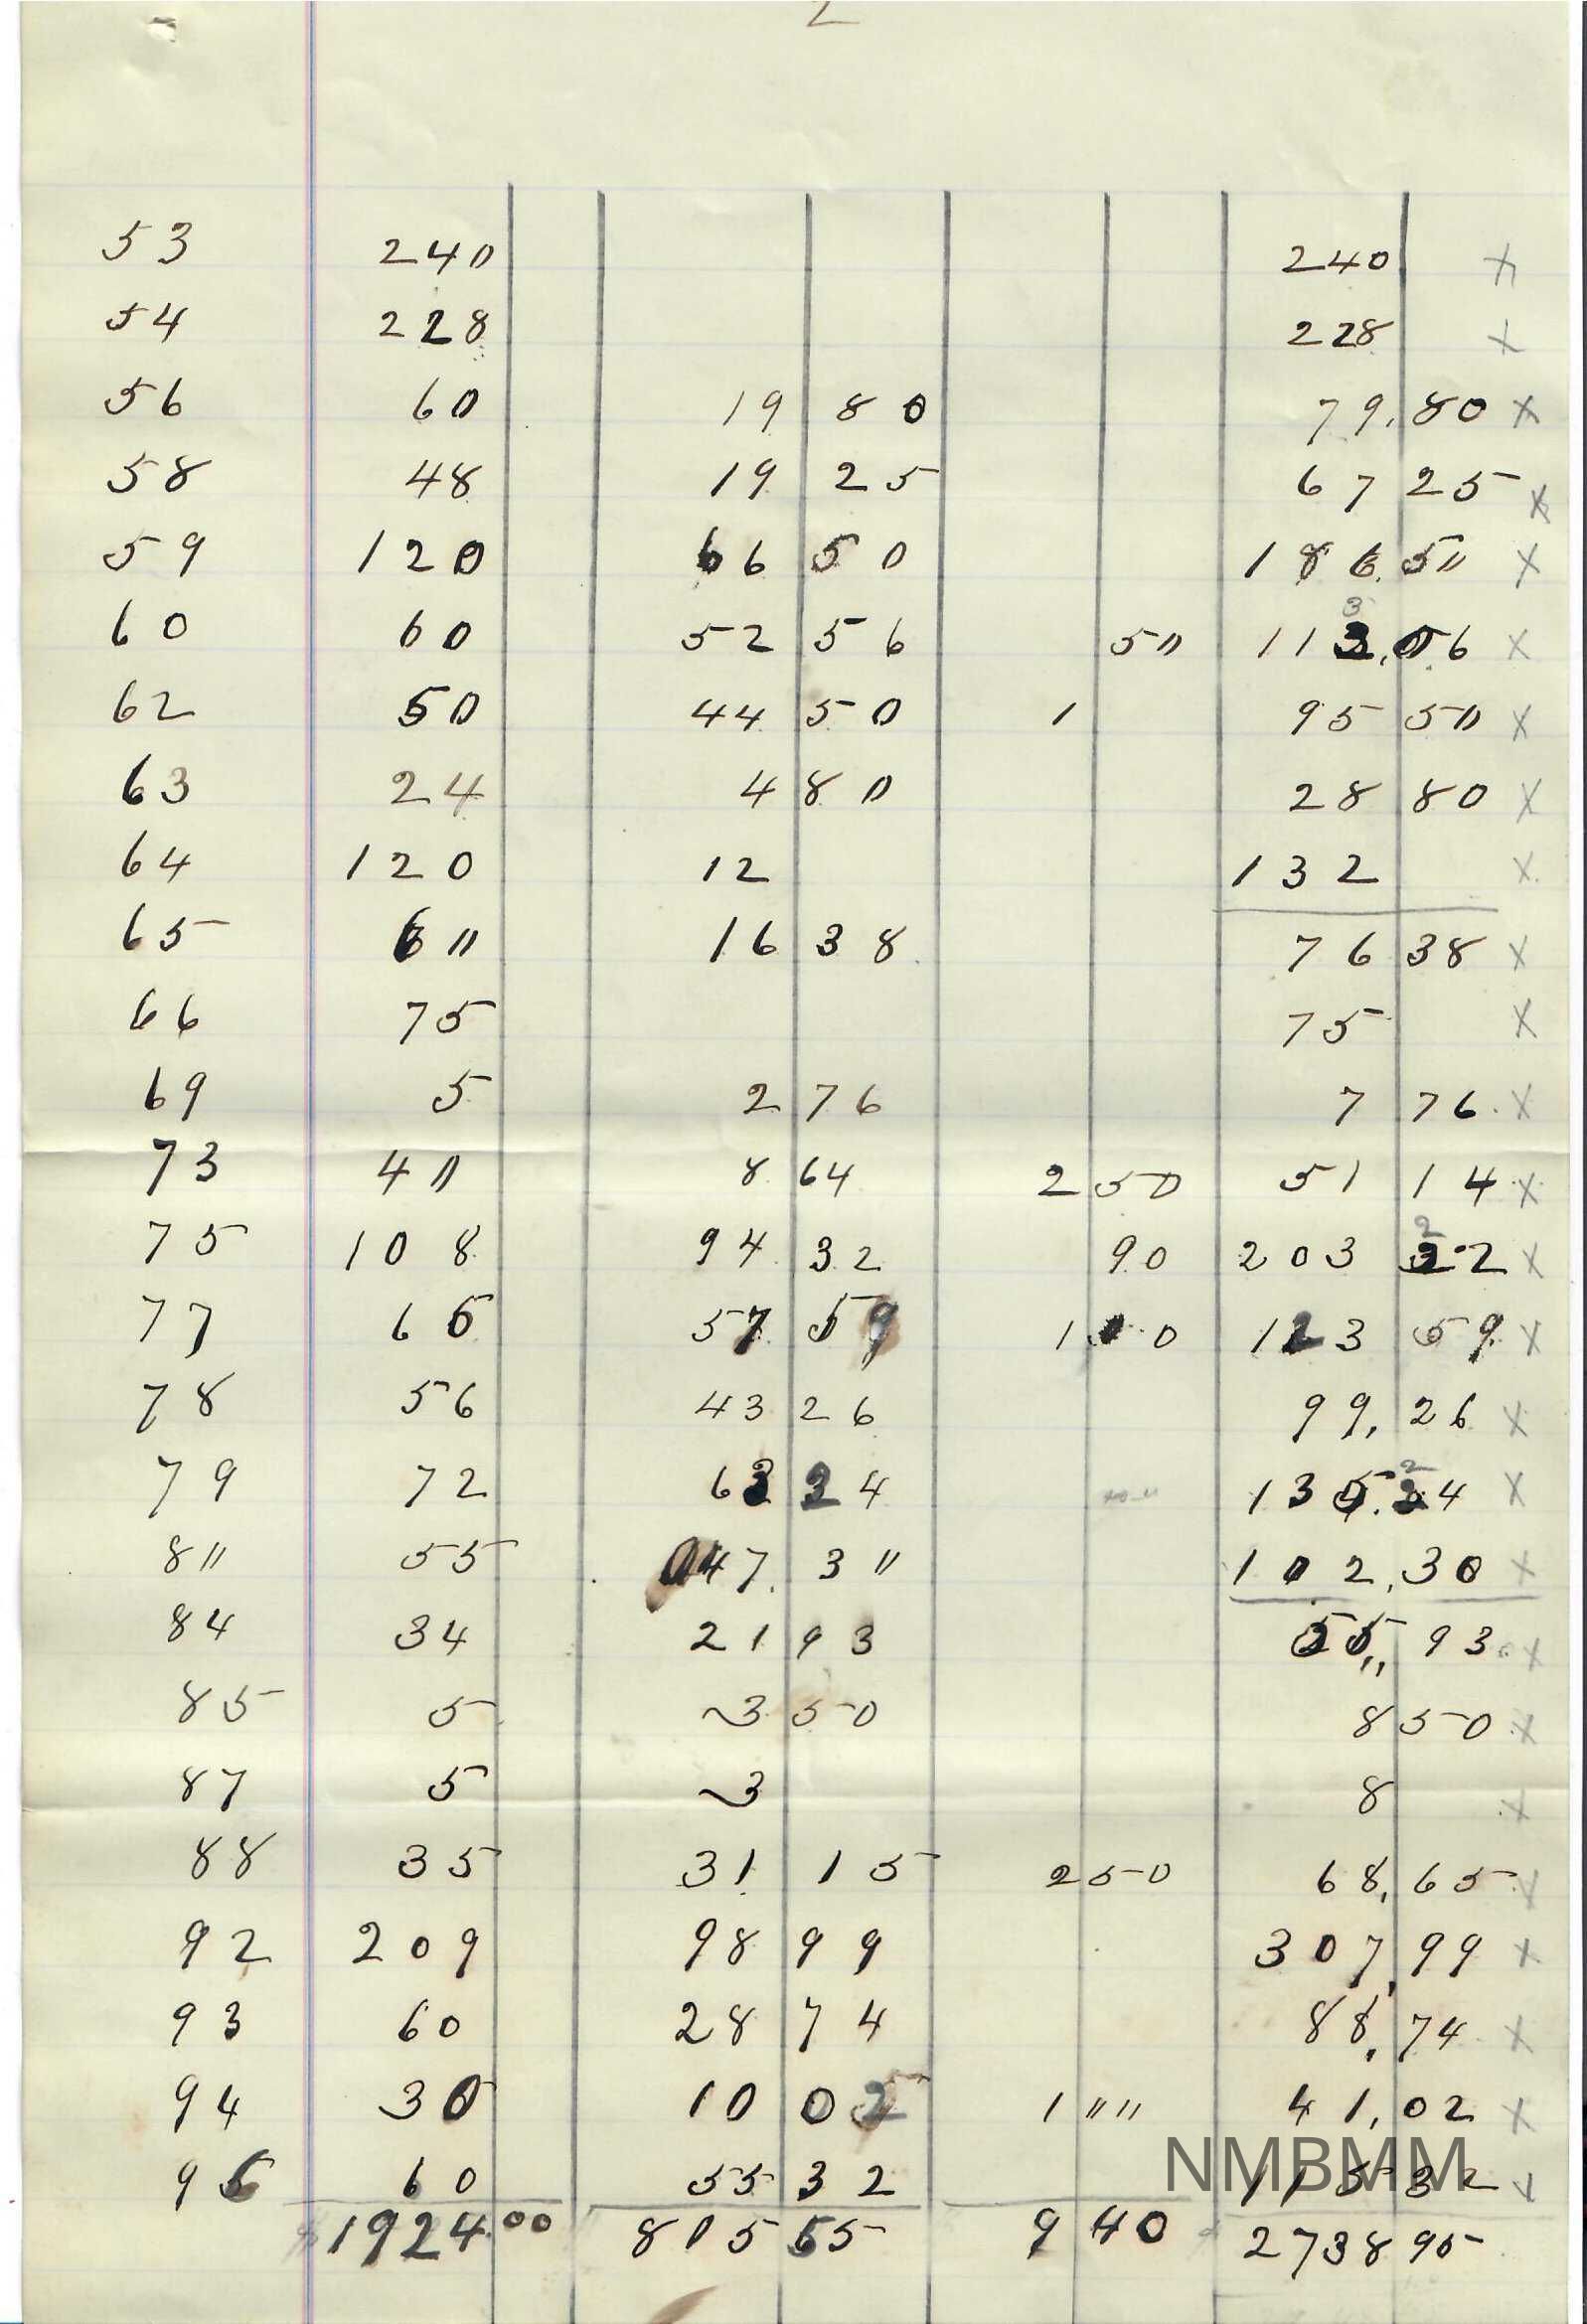 2
53 240 240 x
54 228 228 x
56 60 19 80 79.80 x
58 48 19 25 67 25 x
59 120 66 50 186.5" x
3
60 60 52 56 5" 113.06 x
62 50 44 50 1 95 50 x
63 24 4 80 28 80 x
64 120 12 132 x
65 6" 16 38 76 38 x
66 75 75 x
69 5 2 76 7 76 x
73 4" 8 64 2 50 51 14 x
2
75 108 94 32 90 203 22 x
77 65 57 59 1 00 123 59 x
78 56 43 26 99.26 x
2
79 72 63 24 135.24 x
8" 55 47.3" 102.30 x
84 34 21 93 55,, 93 x
85 5 3 50 8 50 x
87 5 3 8 x
88 35 31 15 2 50 68.65 x
92 209 98 99 307.99 x
93 60 28 74 88.74 x
94 30 10 02 1 "" 41.02 x
NMBMM
95 60 55 32 115 32 x
1924.00 805 55 9 40 2738 95